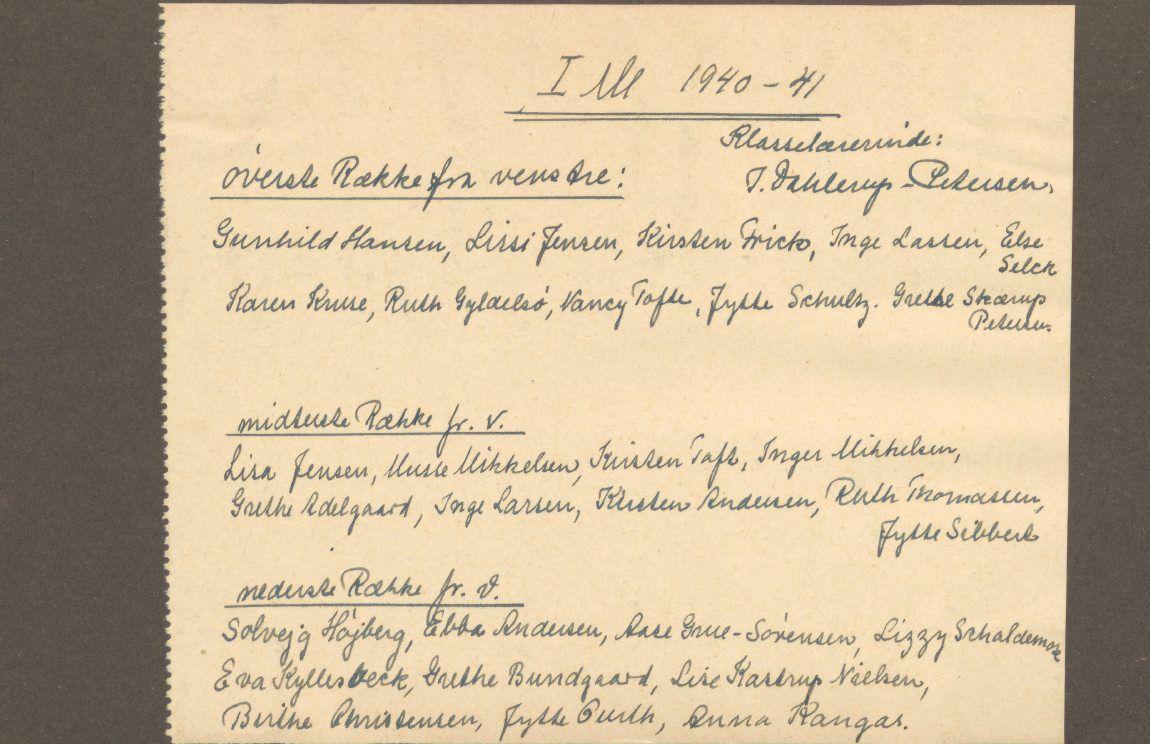 I Ml 1940-41
Klasselærerinde:
øverste Række fra venstre:
I. Dahlerup-Petersen.
Gunhild Hansen, Lissi Jensen, Kirsten Frick, Inge Lassen, Else
Selck
Karen Kruse, Ruth Gyldelsø, Nancy Tofte, Jytte Schultz. Grethe Skærup
Petersen.
midterste Række fr. v.
Lisa Jensen, Musse Mikkelsen, Kirsten Toft, Inger Mikkelsen,
Grethe Adelgaard, Inge Larsen, Kirsten Andersen, Ruth Thomassen,
Jytte Sibbert
nederste Række fr. v.
Solvejg Højberg, Ebba Andersen, Aase Grue-Sørensen, Lizzy Schaldemose
Eva Kyllesbeck, Grethe Bundgaard, Lise Kastrup Nielsen,
Birthe Christensen, Jytte Burth, Anna Rangar.